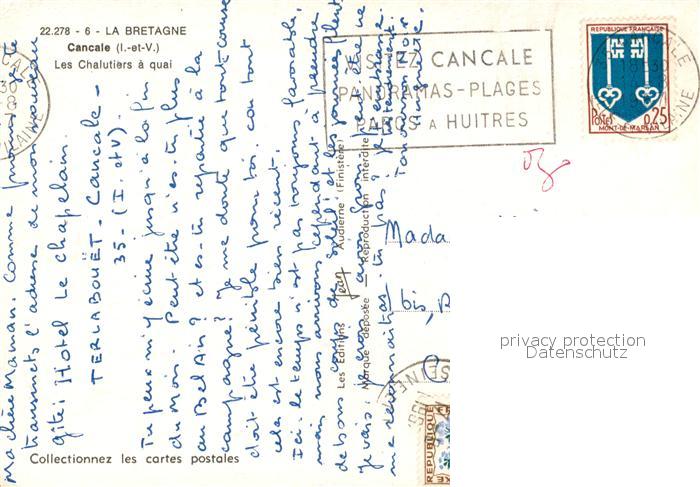 22.278 - 6 - LA BRETAGNE
Cancale (I.-et-V.)
Les Chalutiers à quai
VISITEZ CANCALE
PANORAMAS-PLAGES
PARCS A HUITRES
REPUBLIQUE FRANÇAISE
POSTES
0,25
MONT-DE-MARSAN
Ma chère Maman. Comme promis, je te
transmets l'adresse de mon nouveau
gîte: Hotel Le Chapelain.
TERLABOUËT - Cancale -
35 - (I. et V).
Tu peux m'y écrire jusqu'à la fin
du mois. Peut-être n'es-tu plus
au Bel Air? et es-tu repartie à la
campagne? Je me doute que tout cela
doit être pénible pour toi, car tout
cela est encore bien récent.
Ici le temps n'est pas toujours favorable,
mais nous arrivons cependant à prendre
de bons coups de soleil! et les journées filent
Je vais, je crois, avoir grossi, peut-être ne
me reconnaitras-tu pas?
Les Editions Jean Audierne (Finistère)
Marque déposée — Reproduction interdite
Mada
bis,
privacy protection
Datenschutz
REPUBLIQUE
Collectionnez les cartes postales